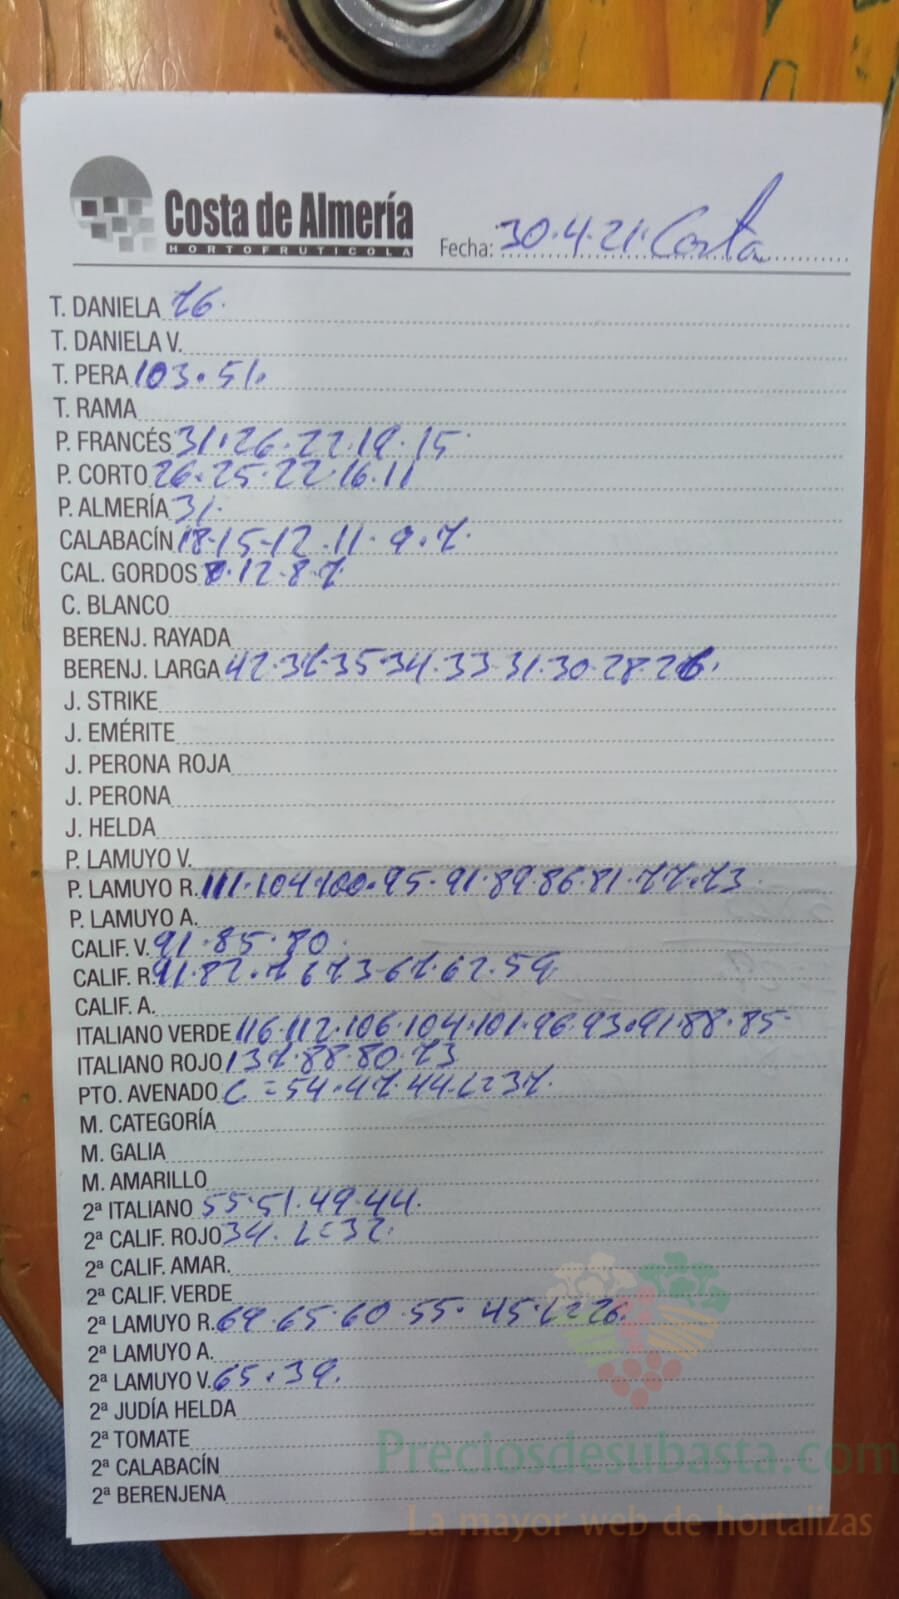 Costa de Almería
HORTOFRUTICOLA
Fecha: 30.4.21. Costa
T. DANIELA 76.
T. DANIELA V.
T. PERA 103.51.
T. RAMA
P. FRANCÉS 31.26.22.19.15
P. CORTO 26.25.22.16.11
P. ALMERÍA 31.
CALABACÍN 18.15-12.11.9.7.
CAL. GORDOS 12.8.7
C. BLANCO
BERENJ. RAYADA
BERENJ. LARGA 42.37.35.34.33.31.30.28.26.
J. STRIKE
J. EMÉRITE
J. PERONA ROJA
J. PERONA
J. HELDA
P. LAMUYO V.
P. LAMUYO R. 111.104.100.95.91.89.86.81.77.73.
P. LAMUYO A.
CALIF. V. 91.85.80.
CALIF. R. 91.82.76 73 67.62.59
CALIF. A.
ITALIANO VERDE 116.112.106.104.101.96.93.91.88.85-
ITALIANO ROJO 137.88.80.73
PTO. AVENADO C=54.47.44.L=37.
M. CATEGORÍA
M. GALIA
M. AMARILLO
2ª ITALIANO 55.51.49.44.
2ª CALIF. ROJO 34. L=32.
2ª CALIF. AMAR.
2ª CALIF. VERDE
2ª LAMUYO R. 69.65.60.55.45.L=26.
2ª LAMUYO A.
2ª LAMUYO V. 65.39.
2ª JUDÍA HELDA
2ª TOMATE
2ª CALABACÍN
2ª BERENJENA
Preciosdesubasta.com
La mayor web de hortalizas